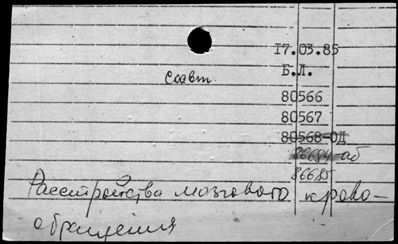 17.03.85
Соавт
Б.Л.
80566
80567
80568-ОД
86684-аб
86685
Расстройства мозгового крово-
обращения